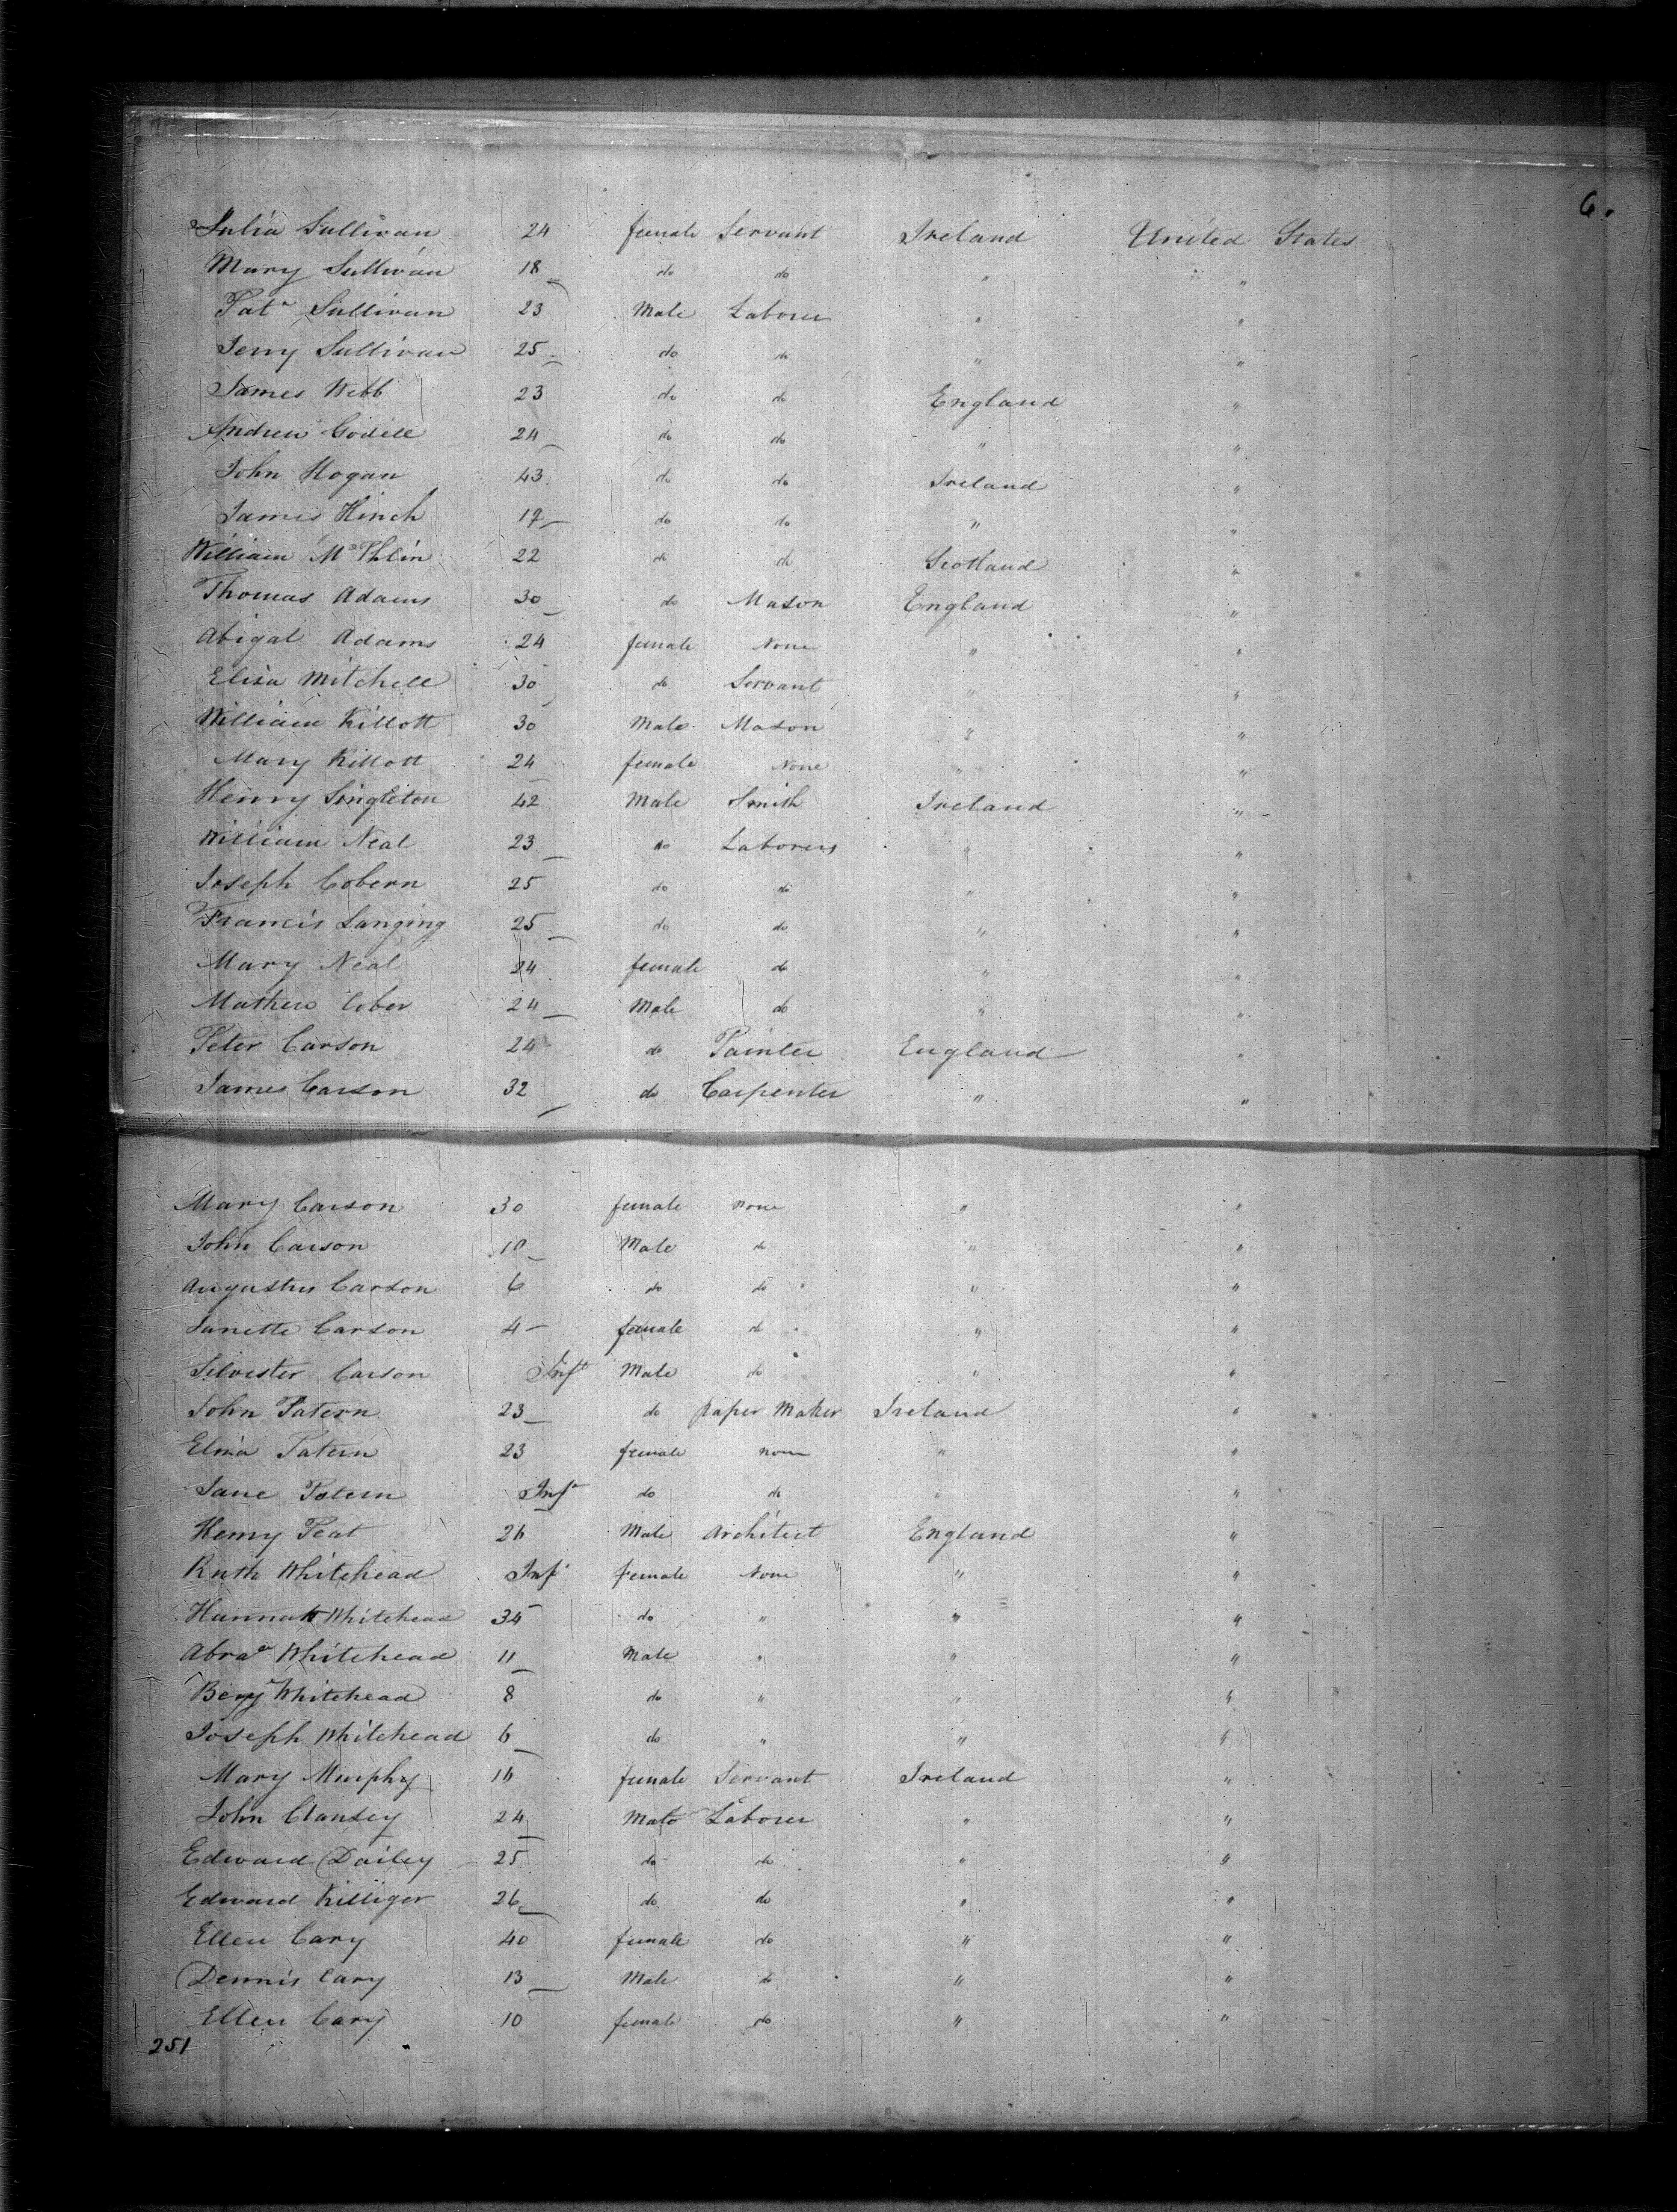 6.
Julia Sullivan 24 female Servant Ireland United States
Mary Sullivan 18 do do " "
Pat Sullivan 23 Male Laborer " "
Jerry Sullivan 25 do do " "
James Webb 23 do do England "
Andrew 24 do do " "
John Hogan 43 do do Ireland "
James Hinch 17 do do " "
William 22 do do Scotland "
Thomas Adams 30 do Mason England "
Abigal Adams 24 female None " "
Eliza Mitchell 30 do Servant " "
William Killott 30 Male Mason " "
Mary Killott 24 female None " "
Henry Singleton 42 Male Smith Ireland "
William Neal 23 do Laborers " "
Joseph Cobern 25 do do " "
Francis Langing 25 do do " "
Mary Neal 24 female do " "
Mathew Cober 24 Male do " "
Peter Carson 24 do Painter England "
James Carson 32 do Carpenter " "
Mary Carson 30 female none " "
John Carson 10 Male do " "
Augustus Carson 6 do do " "
Janette Carson 4 female do " "
Silvester Carson Inft Male do " "
John Patern 23 do paper Maker Ireland "
Patern 23 female none " "
Jane Patern Inft do do " "
Henry Peat 26 Male Architect England "
Ruth Whitehead Inft female None " "
Hannah Whitehead 34 do " " "
Abram Whitehead 11 Male " " "
Benj Whitehead 8 do " " "
Joseph Whitehead 6 do " " "
Mary Murphy 16 female Servant Ireland "
John Clansey 24 Male Laborer " "
Edward Dailey 25 do do " "
Edward Killiger 26 do do " "
Ellen Cary 40 female do " "
Dennis Cary 13 Male do " "
Ellen Cary 10 female do " "
251